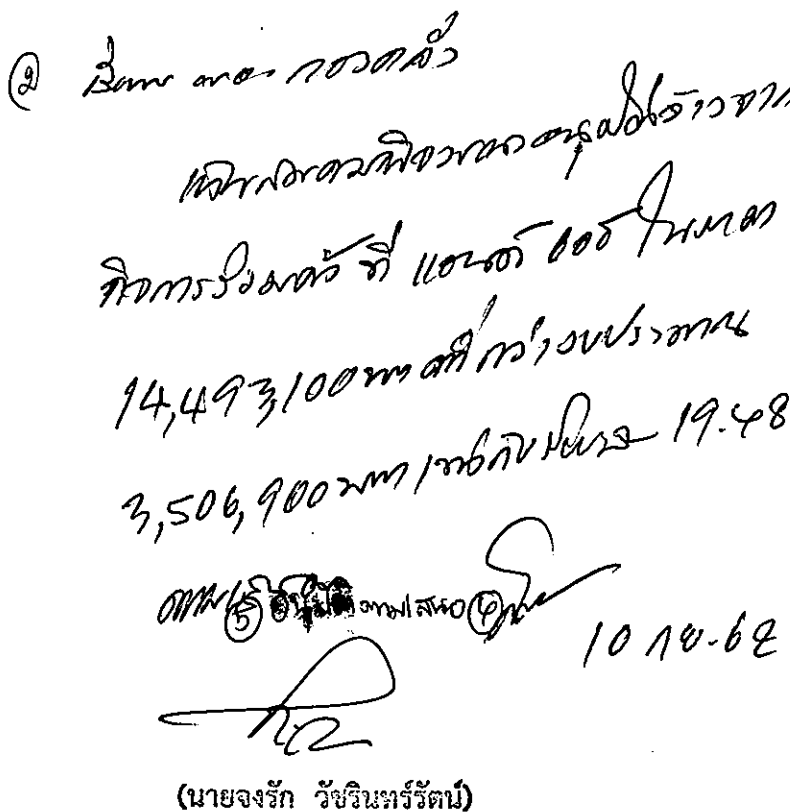 ② เรียน ผอ. กอวดล้ว
เห็นสมควรพิจารณาอนุมัติจ้างจาก
กิจการร่วมค้า ที แอนด์ ออร์ ในราคา
14,493,100 บาท ต่ำกว่างบประมาณ
3,506,900 บาท เท่ากับร้อยละ 19.48
⑤ อนุมัติตามเสนอ ④
10 กย. 62
(นายจงรัก วัชรินทร์รัตน์)